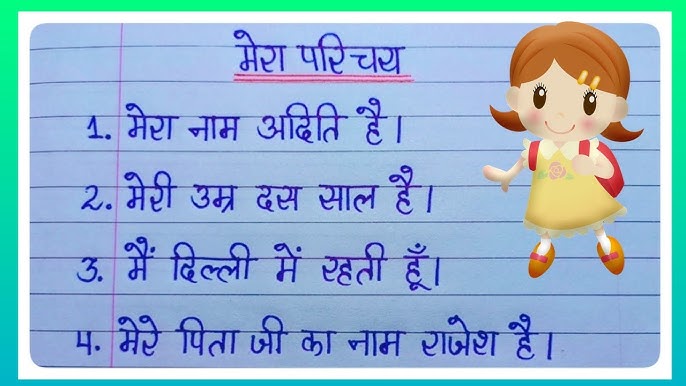 मेरा परिचय
1. मेरा नाम अदिति है।
2. मेरी उम्र दस साल है।
3. मैं दिल्ली में रहती हूँ।
4. मेरे पिता जी का नाम राजेश है।